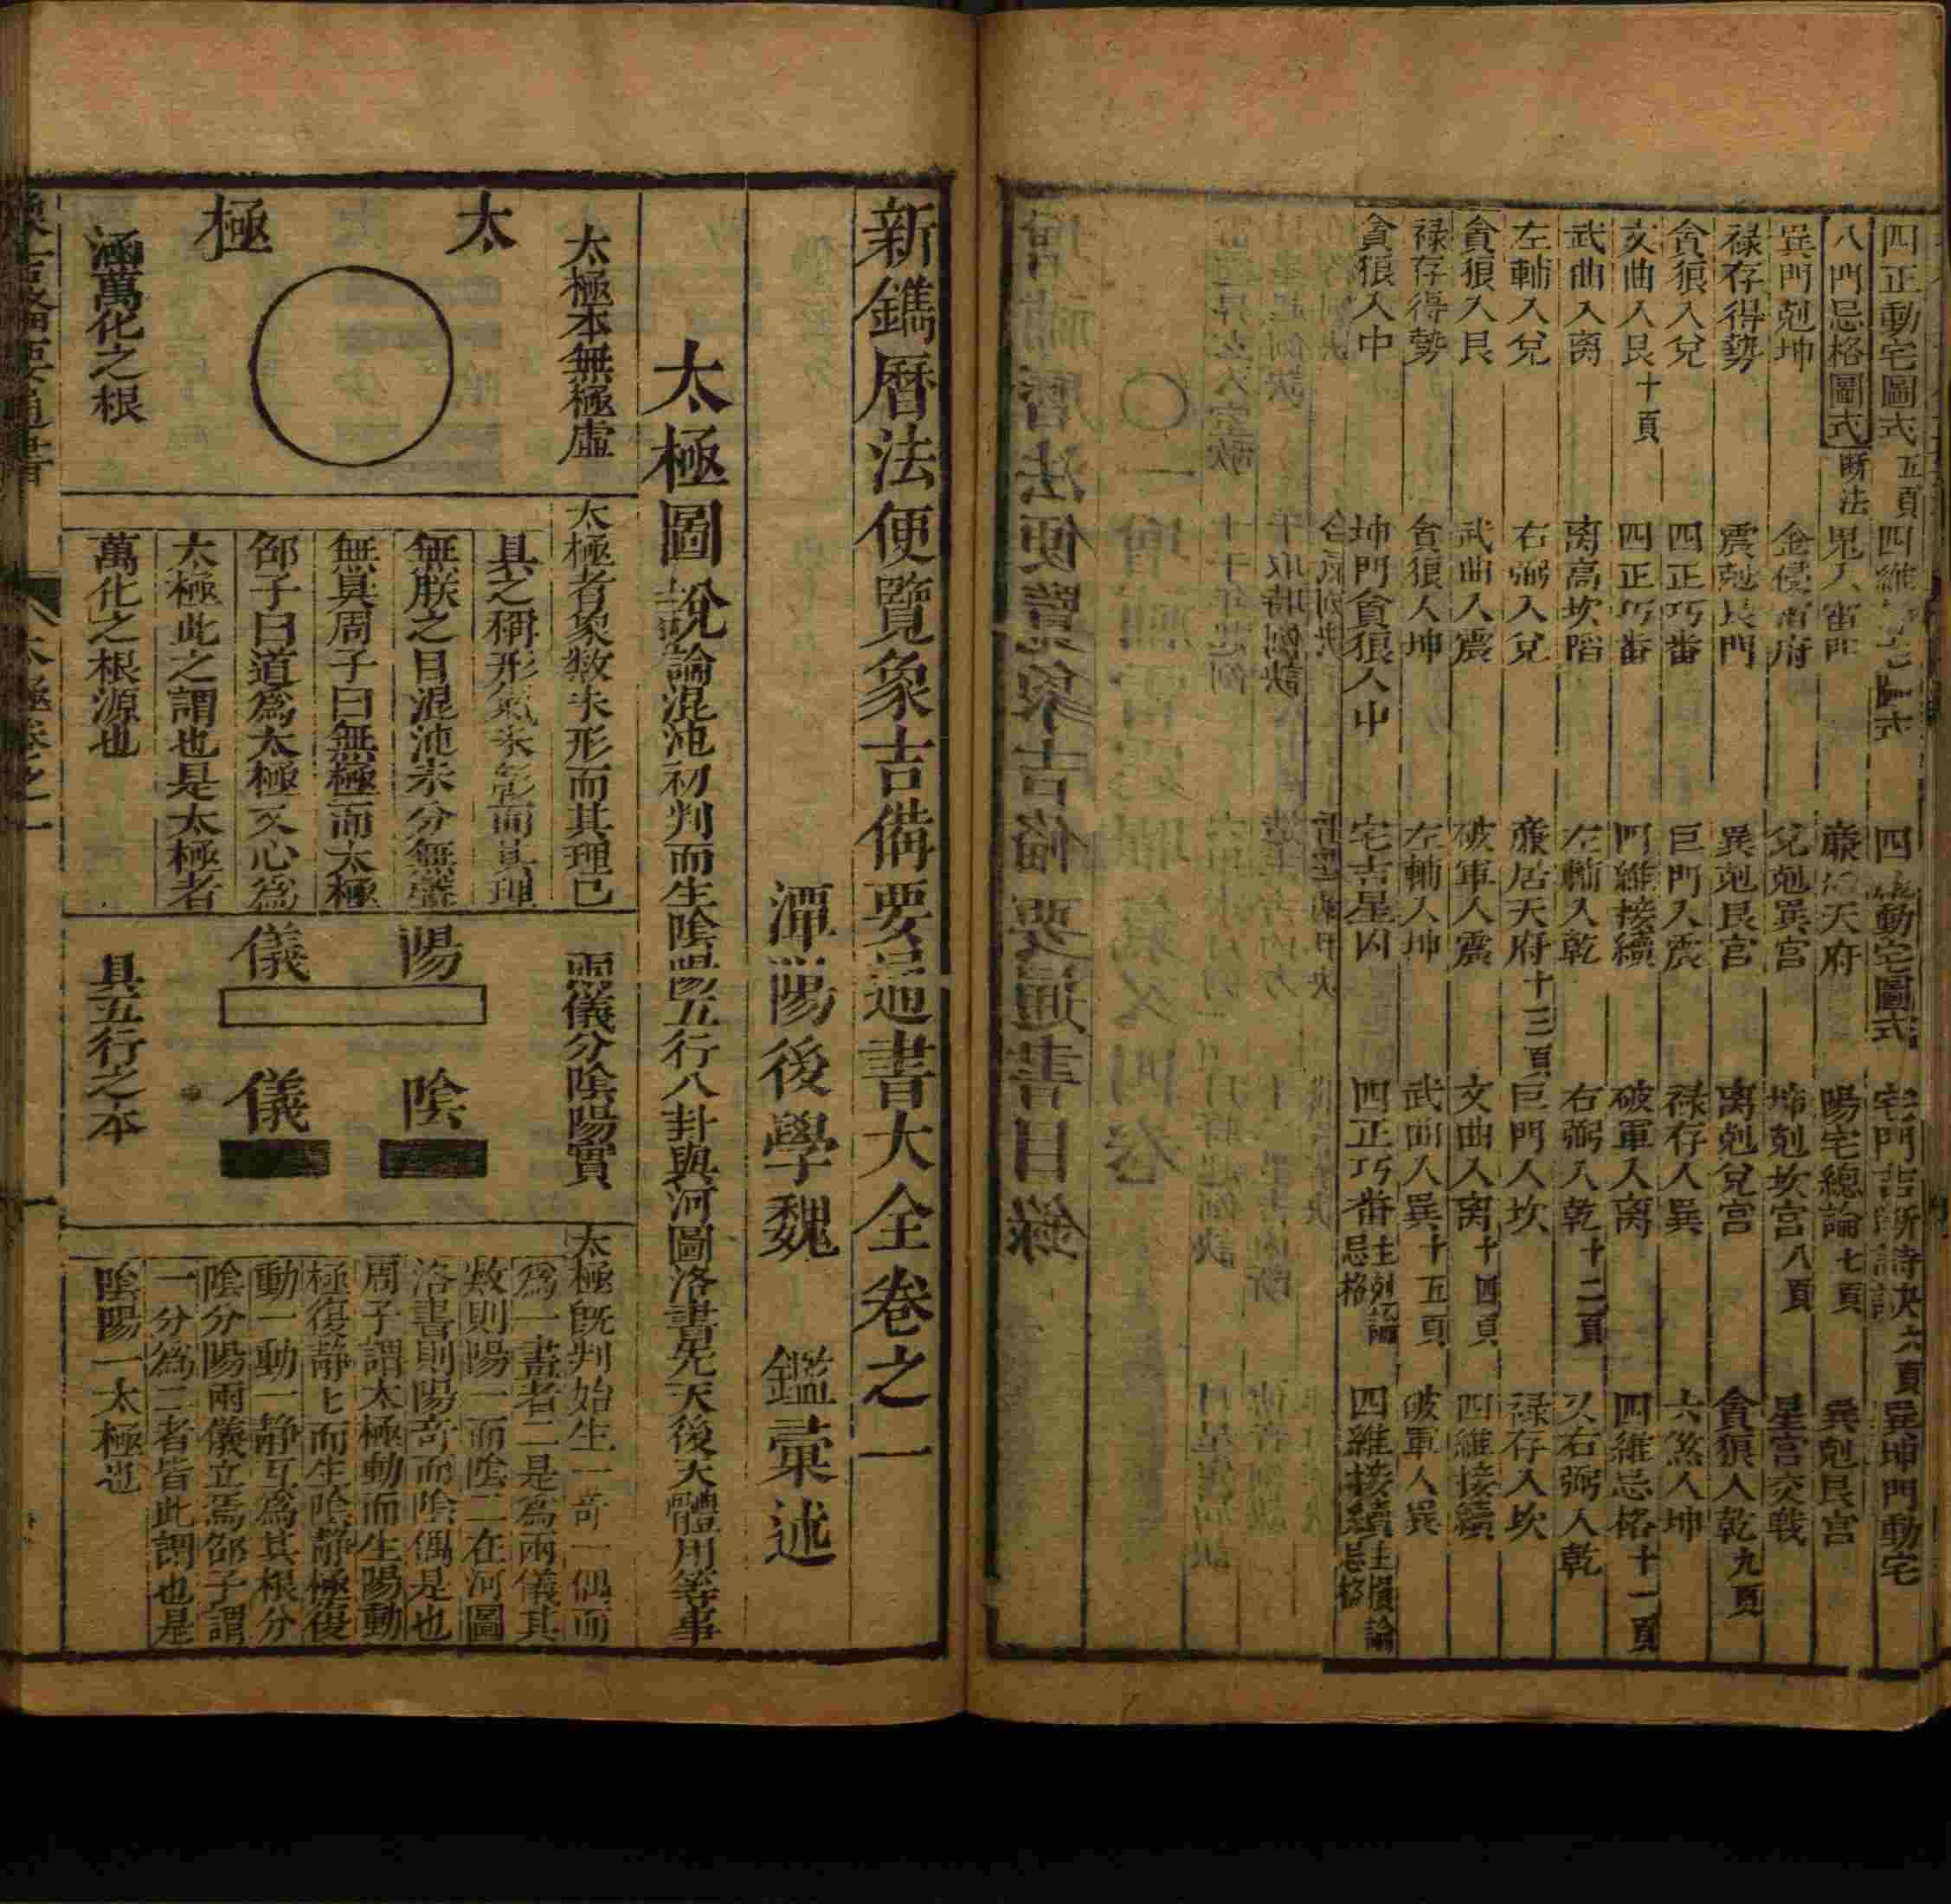 四正動宅圖式五頁 四維 四 動宅圖式 宅門吉 斷詩訣六頁 巽坤門動宅
八門忌格圖式斷法 鬼入雷門 廉 天府 陽宅總論七頁 巽剋艮宮
巽門剋坤 金侵雷府 兌剋巽宮 坤剋坎宮八頁 星宮交戰
祿存得勢 震剋艮門 巽剋艮宮 离剋兌宮 貪狼入乾九頁
貪狼入兌 四正巧番 巨門入震 祿存入巽 六煞入坤
文曲入艮十頁 四正巧番 四維接續 破軍入离 四維忌格十一頁
武曲入离 离高坎陷 左輔入乾 右弼入乾十二頁 又右弼入乾
左輔入兌 右弼入兌 廉居天府十三頁 巨門入坎 祿存入坎
貪狼入艮 武曲入震 破軍入震 文曲入离十四頁 四維接續
祿存得勢 貪狼入坤 左輔入坤 武曲入巽十五頁 破軍入巽
貪狼入中 坤門貪狼入中 宅吉星凶 四正巧番生剋論忌格 四維接續生損論忌格
新鐫曆法便覽象吉備要通書大全卷之一
潭陽後學魏 鑑彚述
太極圖說論混沌初判而生陰陽五行八卦與河圖洛書先天後天體用等事
太極本無極虛
太極
涵萬化之根
太極者象數未形而其理已
具之稱形氣未 而其理
無朕之目混沌未分無聲
無臭周子曰無極而太極
邵子曰道爲太極又心爲
太極此之謂也是太極者
萬化之根源也
兩儀分陰陽實
陽儀
陰儀
具五行之本
太極既判始生一奇一偶而
爲一畫者二是爲兩儀其
數則陽一而陰二在河圖
洛書則陽奇而陰偶是也
周子謂太極動而生陽動
極復靜七而生陰靜極復
動一動一靜互爲其根分
陰分陽兩儀立焉邵子謂
一分爲二者皆此謂也是
陰陽一太極也
象吉備要通書
太極卷之一
一